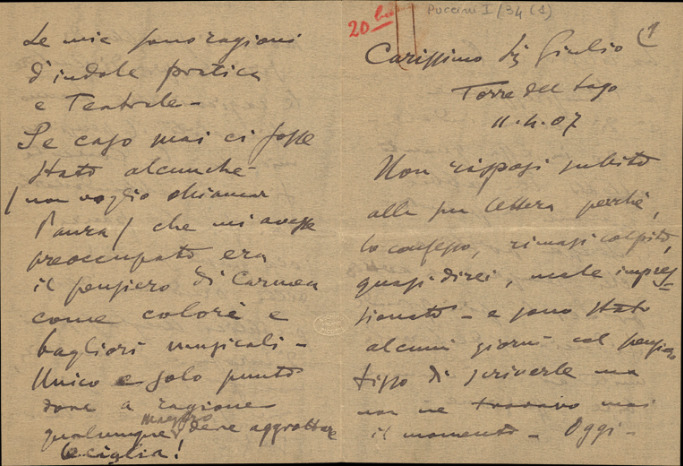 20 bis
Puccini I/34 (1)
(1
Carissimo Sig Giulio
Torre del Lago
11.4.07
Non risposi subito
alla sua lettera perchè,
lo confesso, rimasi colpito,
quasi direi, male impres-
sionato - e sono stato
alcuni giorni col pensiero
fisso di scriverle ma
non ne trovavo mai
il momento - Oggi -
Le mie sono ragioni
d'indole pratica
e Teatrale -
Se caso mai ci fosse
stato alcunchè
(non voglio chiamar
Paura) che mi avesse
preoccupato era
il pensiero di Carmen
come colore e
bagliori musicali -
Unico e solo punto
dove a ragione
qualunque maestro deve aggrottare
le ciglia!